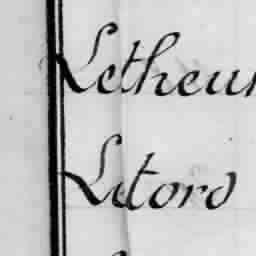 Letheur
Letord